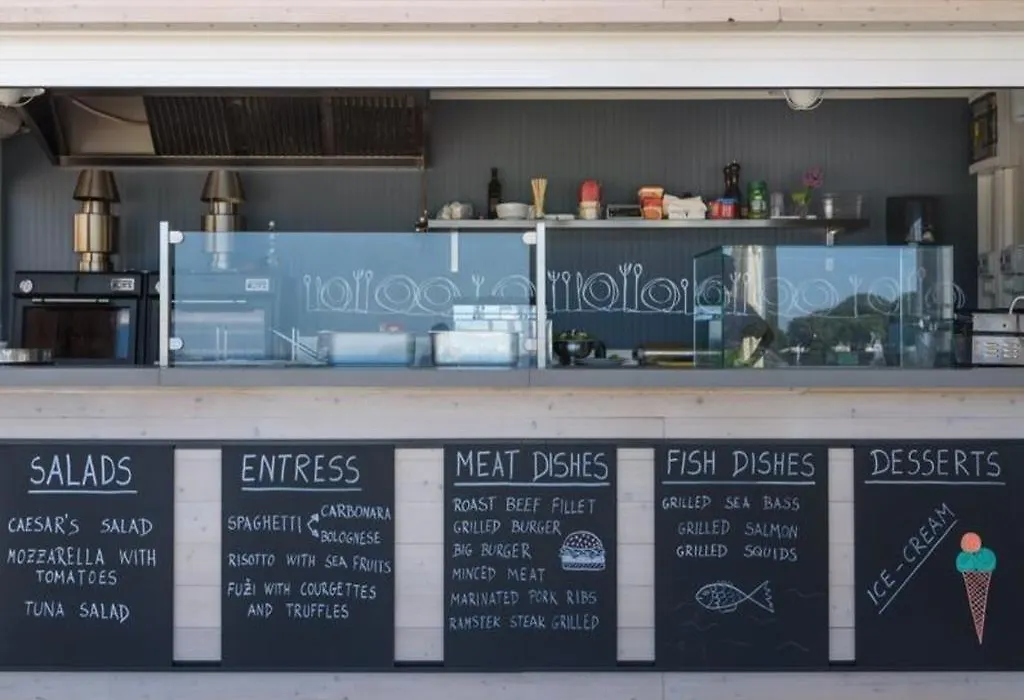 SALADS
CAESAR'S SALAD
MOZZARELLA WITH
TOMATOES
TUNA SALAD
ENTRESS
SPAGHETTI
CARBONARA
BOLOGNESE
RISOTTO WITH SEA FRUITS
FUŽI WITH COURGETTES
AND TRUFFLES
MEAT DISHES
ROAST BEEF FILLET
GRILLED BURGER
BIG BURGER
MINCED MEAT
MARINATED PORK RIBS
RAMSTEK STEAK GRILLED
FISH DISHES
GRILLED SEA BASS
GRILLED SALMON
GRILLED SQUIDS
DESSERTS
ICE-CREAM